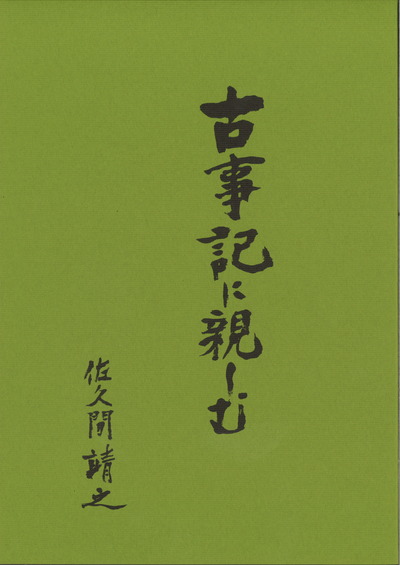 古事記に親しむ
佐久間靖之